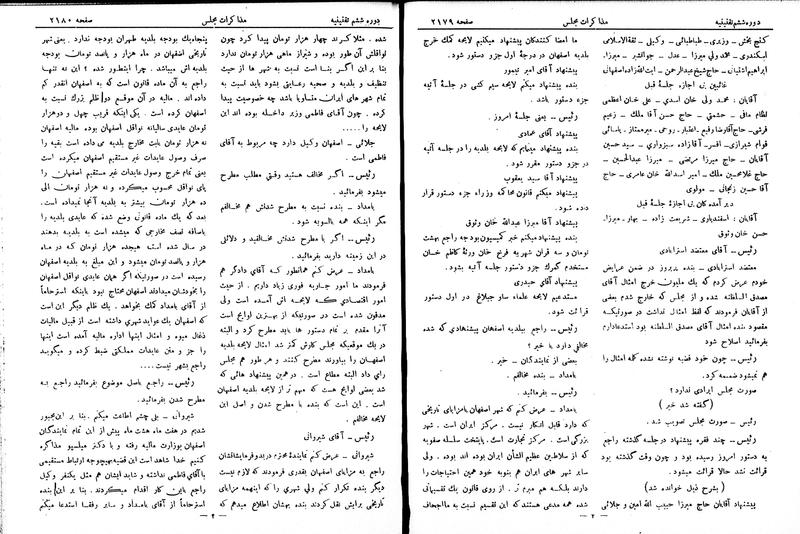 دوره ششم تقنینیه
مذاکرات مجلس
صفحه ۲۱۷۹
گنج بخش - وزیری - طباطبائی - وکیلی - ثقةالاسلامی
اسکندری - محمد ولی میرزا - عدل - جوانشیر - میرزا
ابراهیم آشتیانی - حاج شیخ عبدالرحمن - آیت الله زاده اصفهانی
غائبین بی اجازه جلسه قبل
آقایان : محمد ولی خان اسدی - علی خان اعظمی
نظام مافی - حشمتی - حاج حسن آقا ملک - زعیم
قرشی - حاج آقارضا رفیع - اعتبار - روحی - میرممتاز - یاسائی
قوام شیرازی - افسر - آقازاده سبزواری - سید حسین
آقایان - حاج میرزا مرتضی - میرزا عبدالحسین -
حاج غلامحسین ملک - امیر اسدالله خان عامری - حاج
آقا حسین زنجانی - مولوی
دیر آمده گان بی اجازه جلسه قبل
آقایان : اسفندیاری - شریعت زاده - بهار - میرزا
حسن خان وثوق
رئیس - آقای معتضد استرابادی
معتضد استرابادی - بنده پریروز در ضمن عرایض
خودم عرض کردم که یک ملیون خرج امثال آقای
مصدق السلطنه شده و از مجلس که خارج شدم بعضی
از آقایان فرمودند که لفظ امثال نداشت در صورتیکه
مقصود بنده امثال آقای مصدق السلطنه بود استدعا دارم
بفرمائید اصلاح شود
رئیس - چون خود قضیه نوشته نشده کلمه امثال را
هم نمیشود ضمیمه کرد.
صورت مجلس ایرادی ندارد؟
(گفته شد خیر)
رئیس - صورت مجلس تصویب شد.
رئیس - چند فقره پیشنهاد در جلسه گذشته راجع
به دستور امروز رسیده بود و چون وقت گذشته بود
قرائت نشد حالا قرائت میشود.
(بشرح ذیل خوانده شد)
پیشنهاد آقایان حاج میرزا حبیب الله امین و جلائی
ما امضا کنندگان پیشنهاد میکنیم لایحه کمک خرج
بلدیه اصفهان در درجه اول جزو دستور شود.
پیشنهاد آقای امیر تیمور
بنده پیشنهاد میکنم لایحه سیم کشی در جلسه آتیه
جزو دستور باشد.
رئیس - یعنی جلسه امروز.
پیشنهاد آقای عمادی
بنده پیشنهاد مینمایم که لایحه بلدیه را در جلسه آتیه
در جزو دستور مقرر شود.
پیشنهاد آقا سید یعقوب
پیشنهاد میکنم قانون محاکمه وزراء جزء دستور قرار
داده شود.
پیشنهاد آقا میرزا عبدالله خان وثوق
بنده پیشنهاد میکنم خبر کمیسیون بودجه راجع بهشت
تومان و سه قران شهریه فرخ خان ورثه کاظم خان
مستخدم گمرک جزو دستور جلسه آتیه بشود.
پیشنهاد آقای حیدری
مستدعیم لایحه علماء ساوجبلاغ در اول دستور
قرائت شود.
رئیس - راجع ببلدیه اصفهان پیشنهادی که شده
مخالفی دارد یا خیر؟
بعضی از نمایندگان - خیر.
بامداد - بنده مخالفم.
رئیس - بفرمائید.
بامداد - عرض کنم که شهر اصفهان با مزایای تاریخی
که دارد قابل انکار نیست. مرکز ایران است. شهر
بزرگی است. مرکز تجارت است. پایتخت سلسله صفویه
که از سلاطین عظیم الشأن ایران بوده اند بوده. ولی
سایر شهر های ایران هم بنوبه خود همین احتیاجات را
دارند بلکه هم مبرم تر. از روی قانون یک تقسیماتی
شده همه مدعی هستند که این تقسیم نسبت به ما اجحاف
- ۲ -
دوره ششم تقنینیه
مذاکرات مجلس
صفحه ۲۱۸۰
شده. مثلا کرمند چهار هزار تومان پیدا کرد چون
نواقلش آن طور بوده و شیراز ماهی هزار تومان ندارد
بنا بر این اگر بنا است نسبت به شهر ها از حیث
تنظیف و بلدیه و صحیه رعایتی بشود باید نسبت به
تمام شهر های ایران متساویا باشد چه خصوصیت پیدا
کرده. چون آقای فاطمی وزیر داخله بوده اند این
لایحه را ....
جلائی - اصفهان وکیل دارد چه مربوط به آقای
فاطمی است.
رئیس - اگر مخالف هستید وقتی مطلب مطرح
میشود بفرمائید.
بامداد - بنده نسبت به مطرح شدنش هم مخالفم
مگر اینکه همه بالسویه شود.
رئیس - اگر با مطرح شدنش مخالفید و دلائلی
در این زمینه دارید بفرمائید.
بامداد - عرض کنم همانطور که آقای دادگر هم
فرمودند ما امور جاریه فوری زیاد داریم. از حیث
امور اقتصادی که لایحه اش آمده است ولی
مدفون شده است در صورتیکه از بهترین لوایح است
آنرا مقدم بر تمام دستور ها باید مطرح کرد و البته
در یک موقعیکه مجلس کارش کمتر شد امثال لایحه بلدیه
اصفهان را بیاورند مطرح کنند و هر طور هم مجلس
رای داد البته مطاع است. در همین پیشنهاد هائی که
شد بعضی لوایح هست که مهم تر از لایحه بلدیه اصفهان
است. این است که بنده با مطرح شدن و اصل این
لایحه مخالفم.
رئیس - آقای شیروانی
شیروانی - عرض کنم نماینده محترم دیروز فرمایشاتشان
راجع به مزایای اصفهان بقدری فرمودند که لازم نیست
دیگر بنده تکرار کنم ولی شهری را که اینهمه مزایای
تاریخی برایش نقل کردند بنده بهشان اطلاع میدهم که
پنجاه یک بودجه بلدیه طهران بودجه ندارد. یعنی شهر
تاریخی اصفهان در ماه هزار و پانصد تومان بودجه
بلدیه اش میباشد. چرا اینطور شده؟ این نه تنها
راجع به آن ماده قانون است که به اصفهان انقدر کم
داده اند. مالیه در آن موقع دو ظلم بزرگ نسبت به
اصفهان کرده است. یکی اینکه قریب چهل و دو هزار
تومان عایدی سالیانه نواقل اصفهان بوده مالیه اصفهان
نه هزار تومان بابت مخارج بلدیه می داده است بقیه را
صرف وصول عایدات غیر مستقیم اصفهان میکرده است
یعنی تمام خرج وصول عایدات غیر مستقیم اصفهان را
پای نواقل محسوب میکرده و نه هزار تومان الی
ده هزار تومان بیشتر به بلدیه آنجا نمیداده است.
بعد که یک ماده قانون وضع شده که عایدی بلدیه را
باضافه نصف مخارجی که میشده است به بلدیه بدهند
در سال شده است هیجده هزار تومان که در ماه
هزار و پانصد تومان میشود و این مبلغ به بلدیه اصفهان
رسیده است در صورتیکه اگر همان عایدی نواقل اصفهان
را بخودشان میدادند اصفهان محتاج نبود باینکه استرحاماً
از آقای بامداد کمک بخواهد. یک ظلم دیگر این است
که اصفهان یک عواید شهری داشته است از قبیل مالیات
ذغال میوه و امثال اینها اداره مالیه آمده است اینها
را جزء و متن عایدات مملکتی ضبط کرده و میگوید
راجع بشهر نیست....
رئیس - راجع باصل موضوع بفرمائید راجع به
مطرح شدن بفرمائید.
شیروانی - بلی چشم اطاعت میکنم. بنا بر این مجبور
شدیم در هفت ماه هشت ماه پیش از این تمام نمایندگان
اصفهان بوزارت مالیه رفته و با دکتر میلسپو مذاکره
کنیم خدا شاهد است این قضیه بهیچوجه ارتباط مستقیمی
با آقای فاطمی نداشته و شاید ایشان هم مثل یکنفر وکیل
راجع باین کار اقدام میکردند. بنا بر این بنده
استرحاماً از آقای بامداد و سایر رفقا استدعا میکنم
- ۳ -